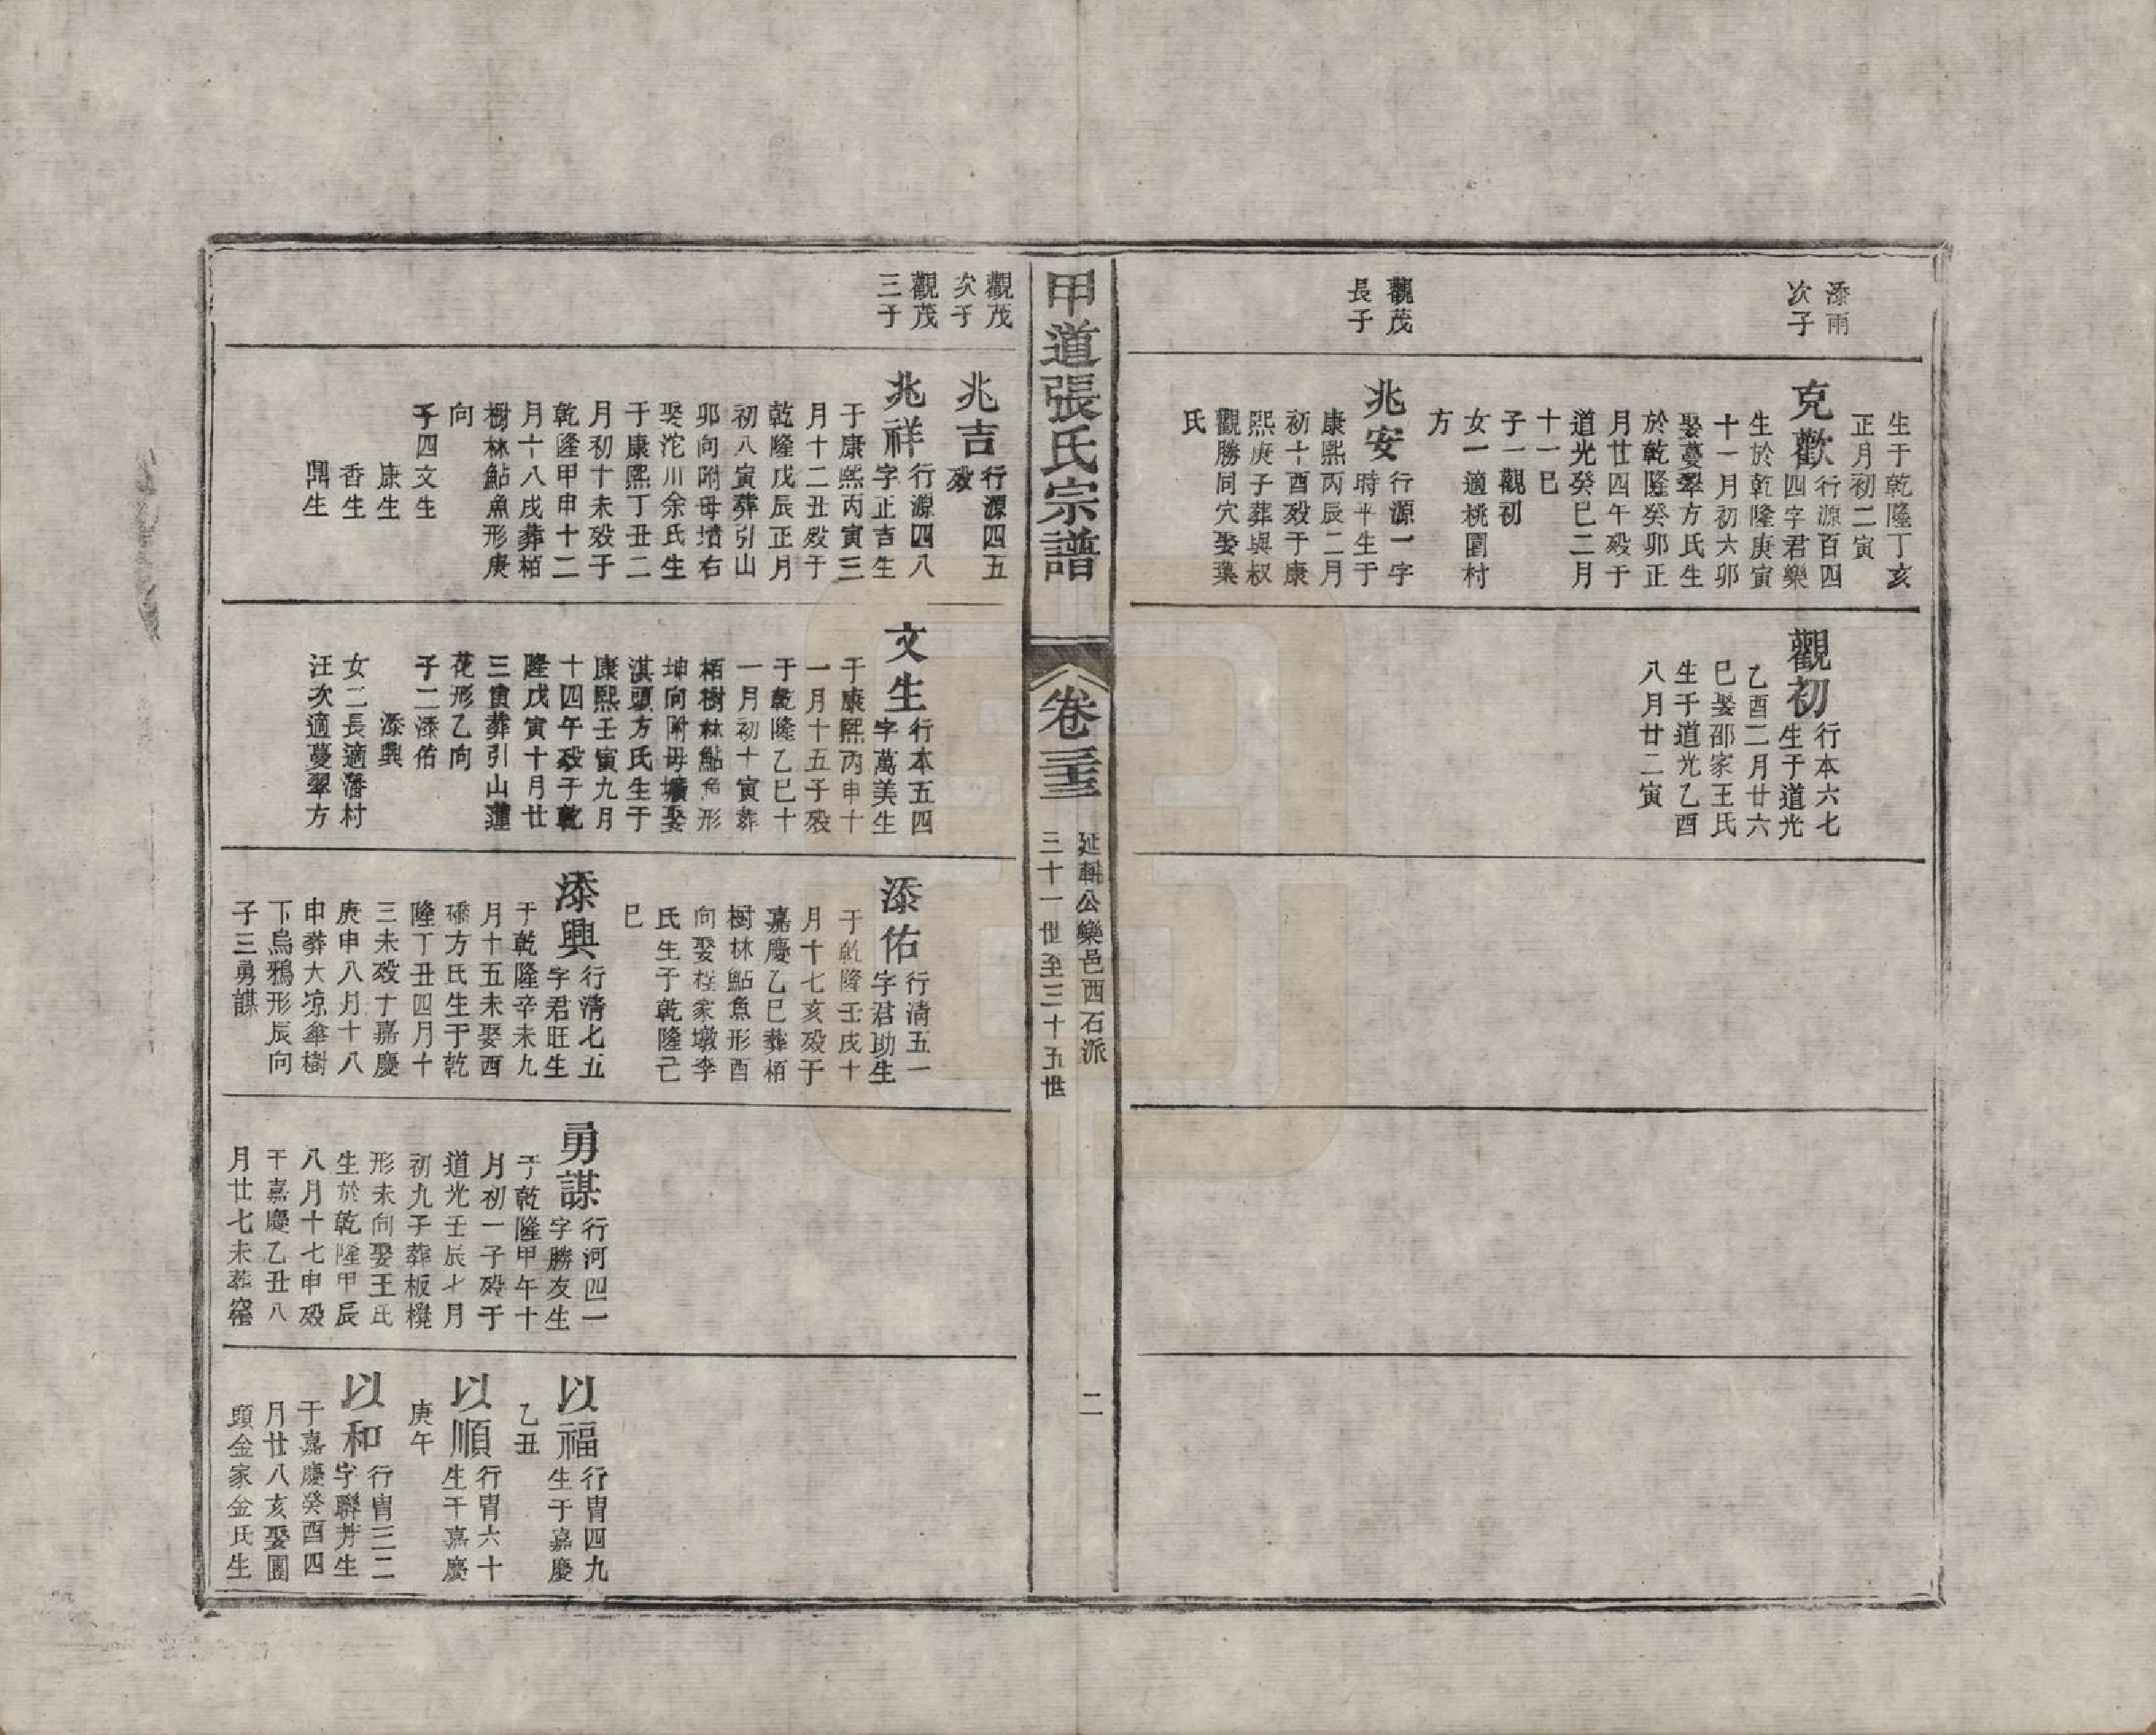 添雨
次子
觀茂
長子
生于乾隆丁亥
正月初二寅
克歡
行源百四
四字君樂
生於乾隆庚寅
十一月初六卯
娶蔓翠方氏生
於乾隆癸卯正
月廿四午歿于
道光癸巳二月
十一巳
子一觀初
女一適桃園村
方
兆安
行源一字
時平生于
康熙丙辰二月
初十酉歿于康
熙庚子葬與叔
觀勝同穴娶葉
氏
觀初
行本六七
生于道光
乙酉二月廿六
巳娶邵家王氏
生于道光乙酉
八月廿二寅
甲道張氏宗譜
卷三十三
延輧公欒邑西石派
三十一世至三十五世
二
觀茂
次子
觀茂
三子
兆吉
行源四五
歿
兆祥
行源四八
字正吉生
于康熙丙寅三
月十二丑歿于
乾隆戊辰正月
初八寅葬引山
卯向附母墳右
娶沱川余氏生
于康熙丁丑二
月初十未歿于
乾隆甲申十二
月十八戌葬栢
樹林鮎魚形庚
向
子四文生
康生
香生
鼎生
文生
行本五四
字萬美生
于康熙丙申十
一月十五子歿
于乾隆乙巳十
一月初十寅葬
栢樹林鮎魚形
坤向附母壙娶
淇頭方氏生于
康熙壬寅九月
十四午歿于乾
隆戊寅十月廿
三寅葬引山蓮
花形乙向
子二添佑
添興
女二長適潘村
汪次適蔓翠方
添佑
行清五一
字君助生
于乾隆壬戌十
月十七亥歿于
嘉慶乙巳葬栢
樹林鮎魚形酉
向娶程家墩李
氏生于乾隆己
巳
添興
行清七五
字君旺生
于乾隆辛未九
月十五未娶西
磻方氏生于乾
隆丁丑四月十
三未歿于嘉慶
庚申八月十八
申葬大凉傘樹
下烏鴉形辰向
子三勇謀
勇謀
行河四一
字勝友生
于乾隆甲午十
月初一子歿于
道光壬辰七月
初九子葬板櫈
形未向娶王氏
生於乾隆甲辰
八月十七申歿
于嘉慶乙丑八
月廿七未葬窰
以福
行胄四九
生于嘉慶
乙丑
以順
行胄六十
生于嘉慶
庚午
以和
行胄三二
字聯芳生
于嘉慶癸酉四
月廿八亥娶園
頭金家金氏生